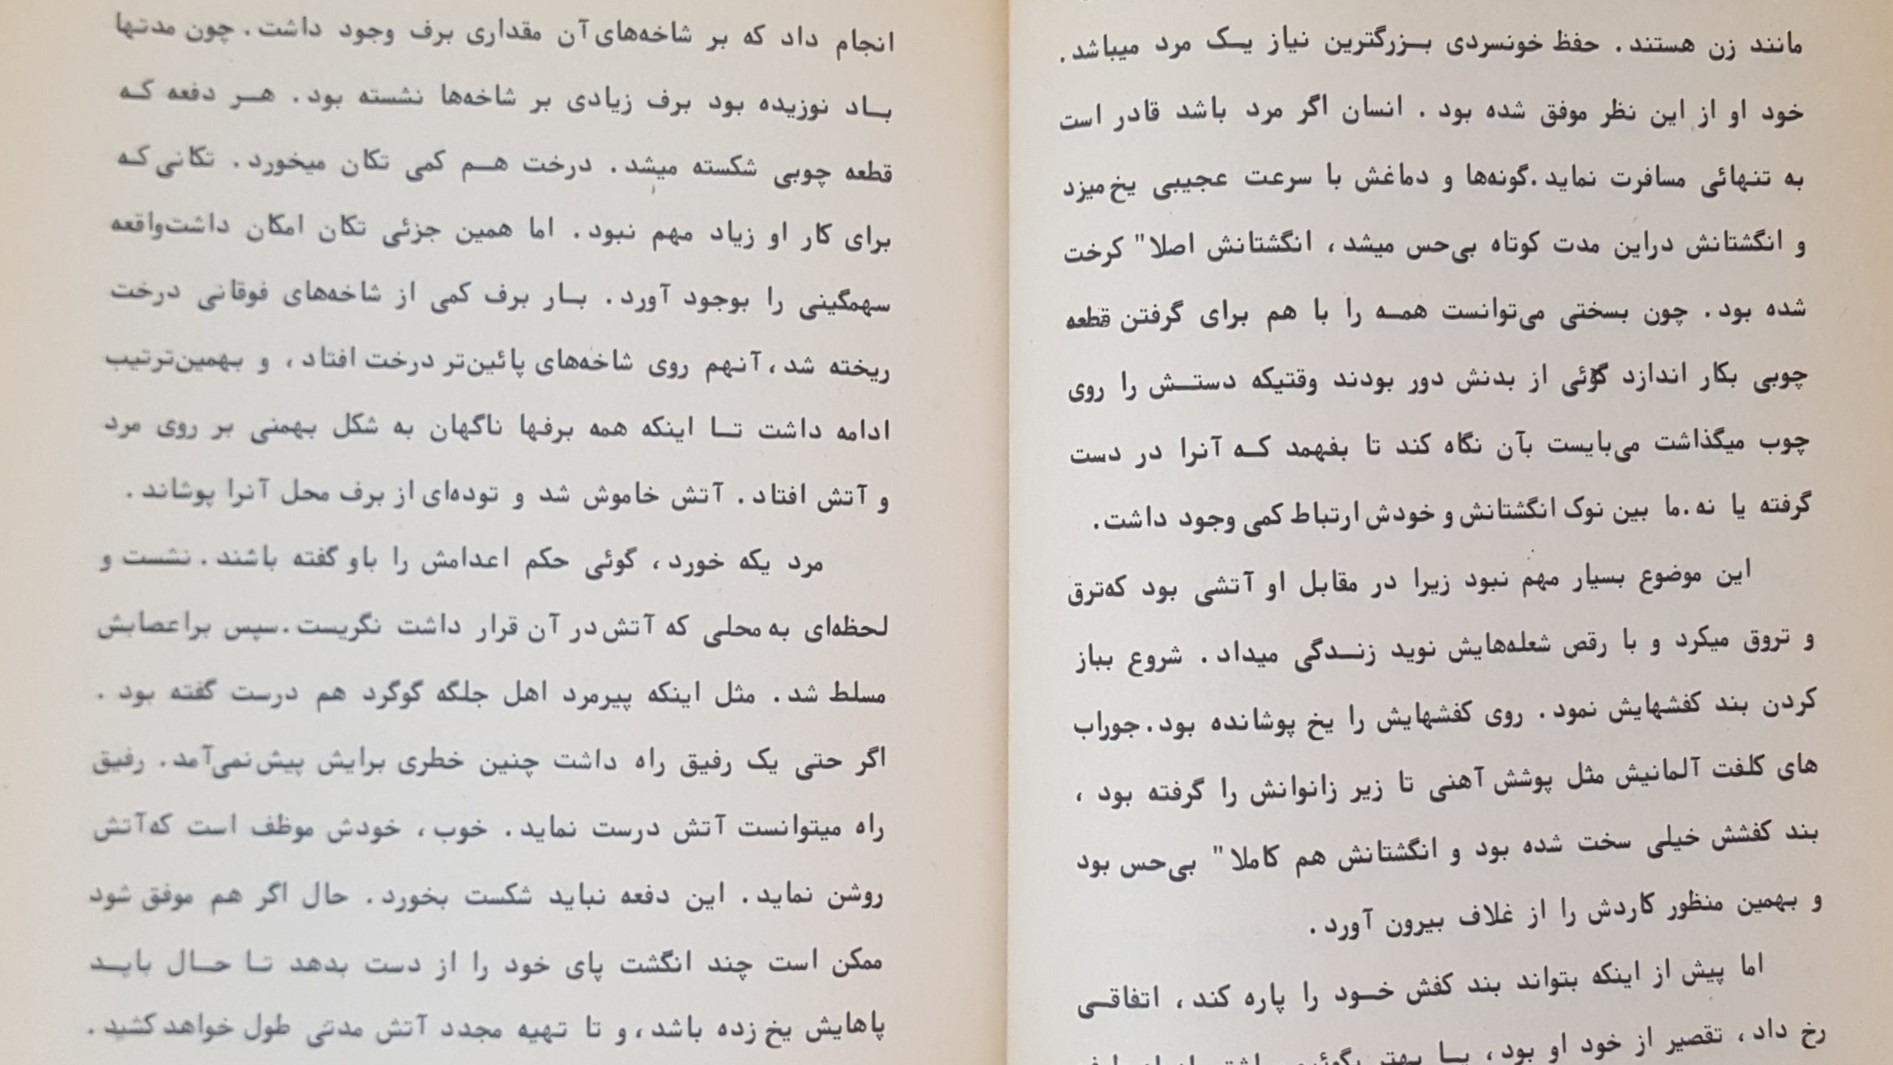 مانند زن هستند. حفظ خونسردی بـزرگترین نیاز یـک مرد میباشد.
خود او از این نظر موفق شده بود. انسان اگر مرد باشد قادر است
به تنهائی مسافرت نماید.گونه‌ها و دماغش با سرعت عجیبی یخ‌میزد
و انگشتانش دراین مدت کوتاه بی‌حس میشد، انگشتانش اصلا" کرخت
شده بود. چون بسختی می‌توانست همـه را با هم برای گرفتن قطعه
چوبی بکار اندازد گوئی از بدنش دور بودند وقتیکه دستـش را روی
چوب میگذاشت می‌بایست بآن نگاه کند تا بفهمد کـه آنرا در دست
گرفته یا نه.ما بین نوک انگشتانش و خودش ارتباط کمی وجود داشت.
این موضوع بسیار مهم نبود زیرا در مقابل او آتشی بود که‌ترق
و تروق میکرد و با رقص شعله‌هایش نوید زنـدگی میداد. شروع بباز
کردن بند کفشهایش نمود. روی کفشهایش را یخ پوشانده بود.جوراب
های کلفت آلمانیش مثل پوشش آهنی تا زیر زانوانش را گرفته بود،
بند کفشش خیلی سخت شده بود و انگشتانش هم کاملا" بی‌حس بود
و بهمین منظور کاردش را از غلاف بیرون آورد.
اما پیش از اینکه بتواند بند کفش خـود را پاره کند، اتفاقـی
رخ داد، تقصیر از خود او بود، یـا بهتر بگوئیم
انجام داد که بر شاخه‌های آن مقداری برف وجود داشت. چون مدتها
بـاد نوزیده بود برف زیادی بر شاخه‌ها نشسته بود. هـر دفعه کـه
قطعه چوبی شکسته میشد. درخت هـم کمی تکان میخورد. تکانی‌کـه
برای کار او زیاد مهم نبود. اما همین جزئی تکان امکان داشت‌واقعه
سهمگینی را بوجود آورد. بـار برف کمی از شاخه‌های فوقانی درخت
ریخته شد،آنهم روی شاخه‌های پائین‌تر درخت افتاد، و بهمین‌ترتیب
ادامه داشت تـا اینکه همه برفها ناگهان به شکل بهمنی بر روی مرد
و آتش افتاد. آتش خاموش شد و توده‌ای از برف محل آنرا پوشاند.
مرد یکه خورد، گوئی حکم اعدامش را باو گفته باشند. نشست و
لحظه‌ای به محلی که آتش در آن قرار داشت نگریست.سپس براعصابش
مسلط شد. مثل اینکه پیرمرد اهل جلگه گوگرد هم درست گفته بود.
اگر حتی یک رفیق راه داشت چنین خطری برایش پیش‌نمی‌آمد. رفیق
راه میتوانست آتش درست نماید. خوب، خودش موظف است که‌آتش
روشن نماید. این دفعه نباید شکست بخورد. حال اگر هم موفق شود
ممکن است چند انگشت پای خود را از دست بدهد تـا حـال بایـد
پاهایش یخ زده باشد، و تا تهیه مجدد آتش مدتی طول خواهد کشید.